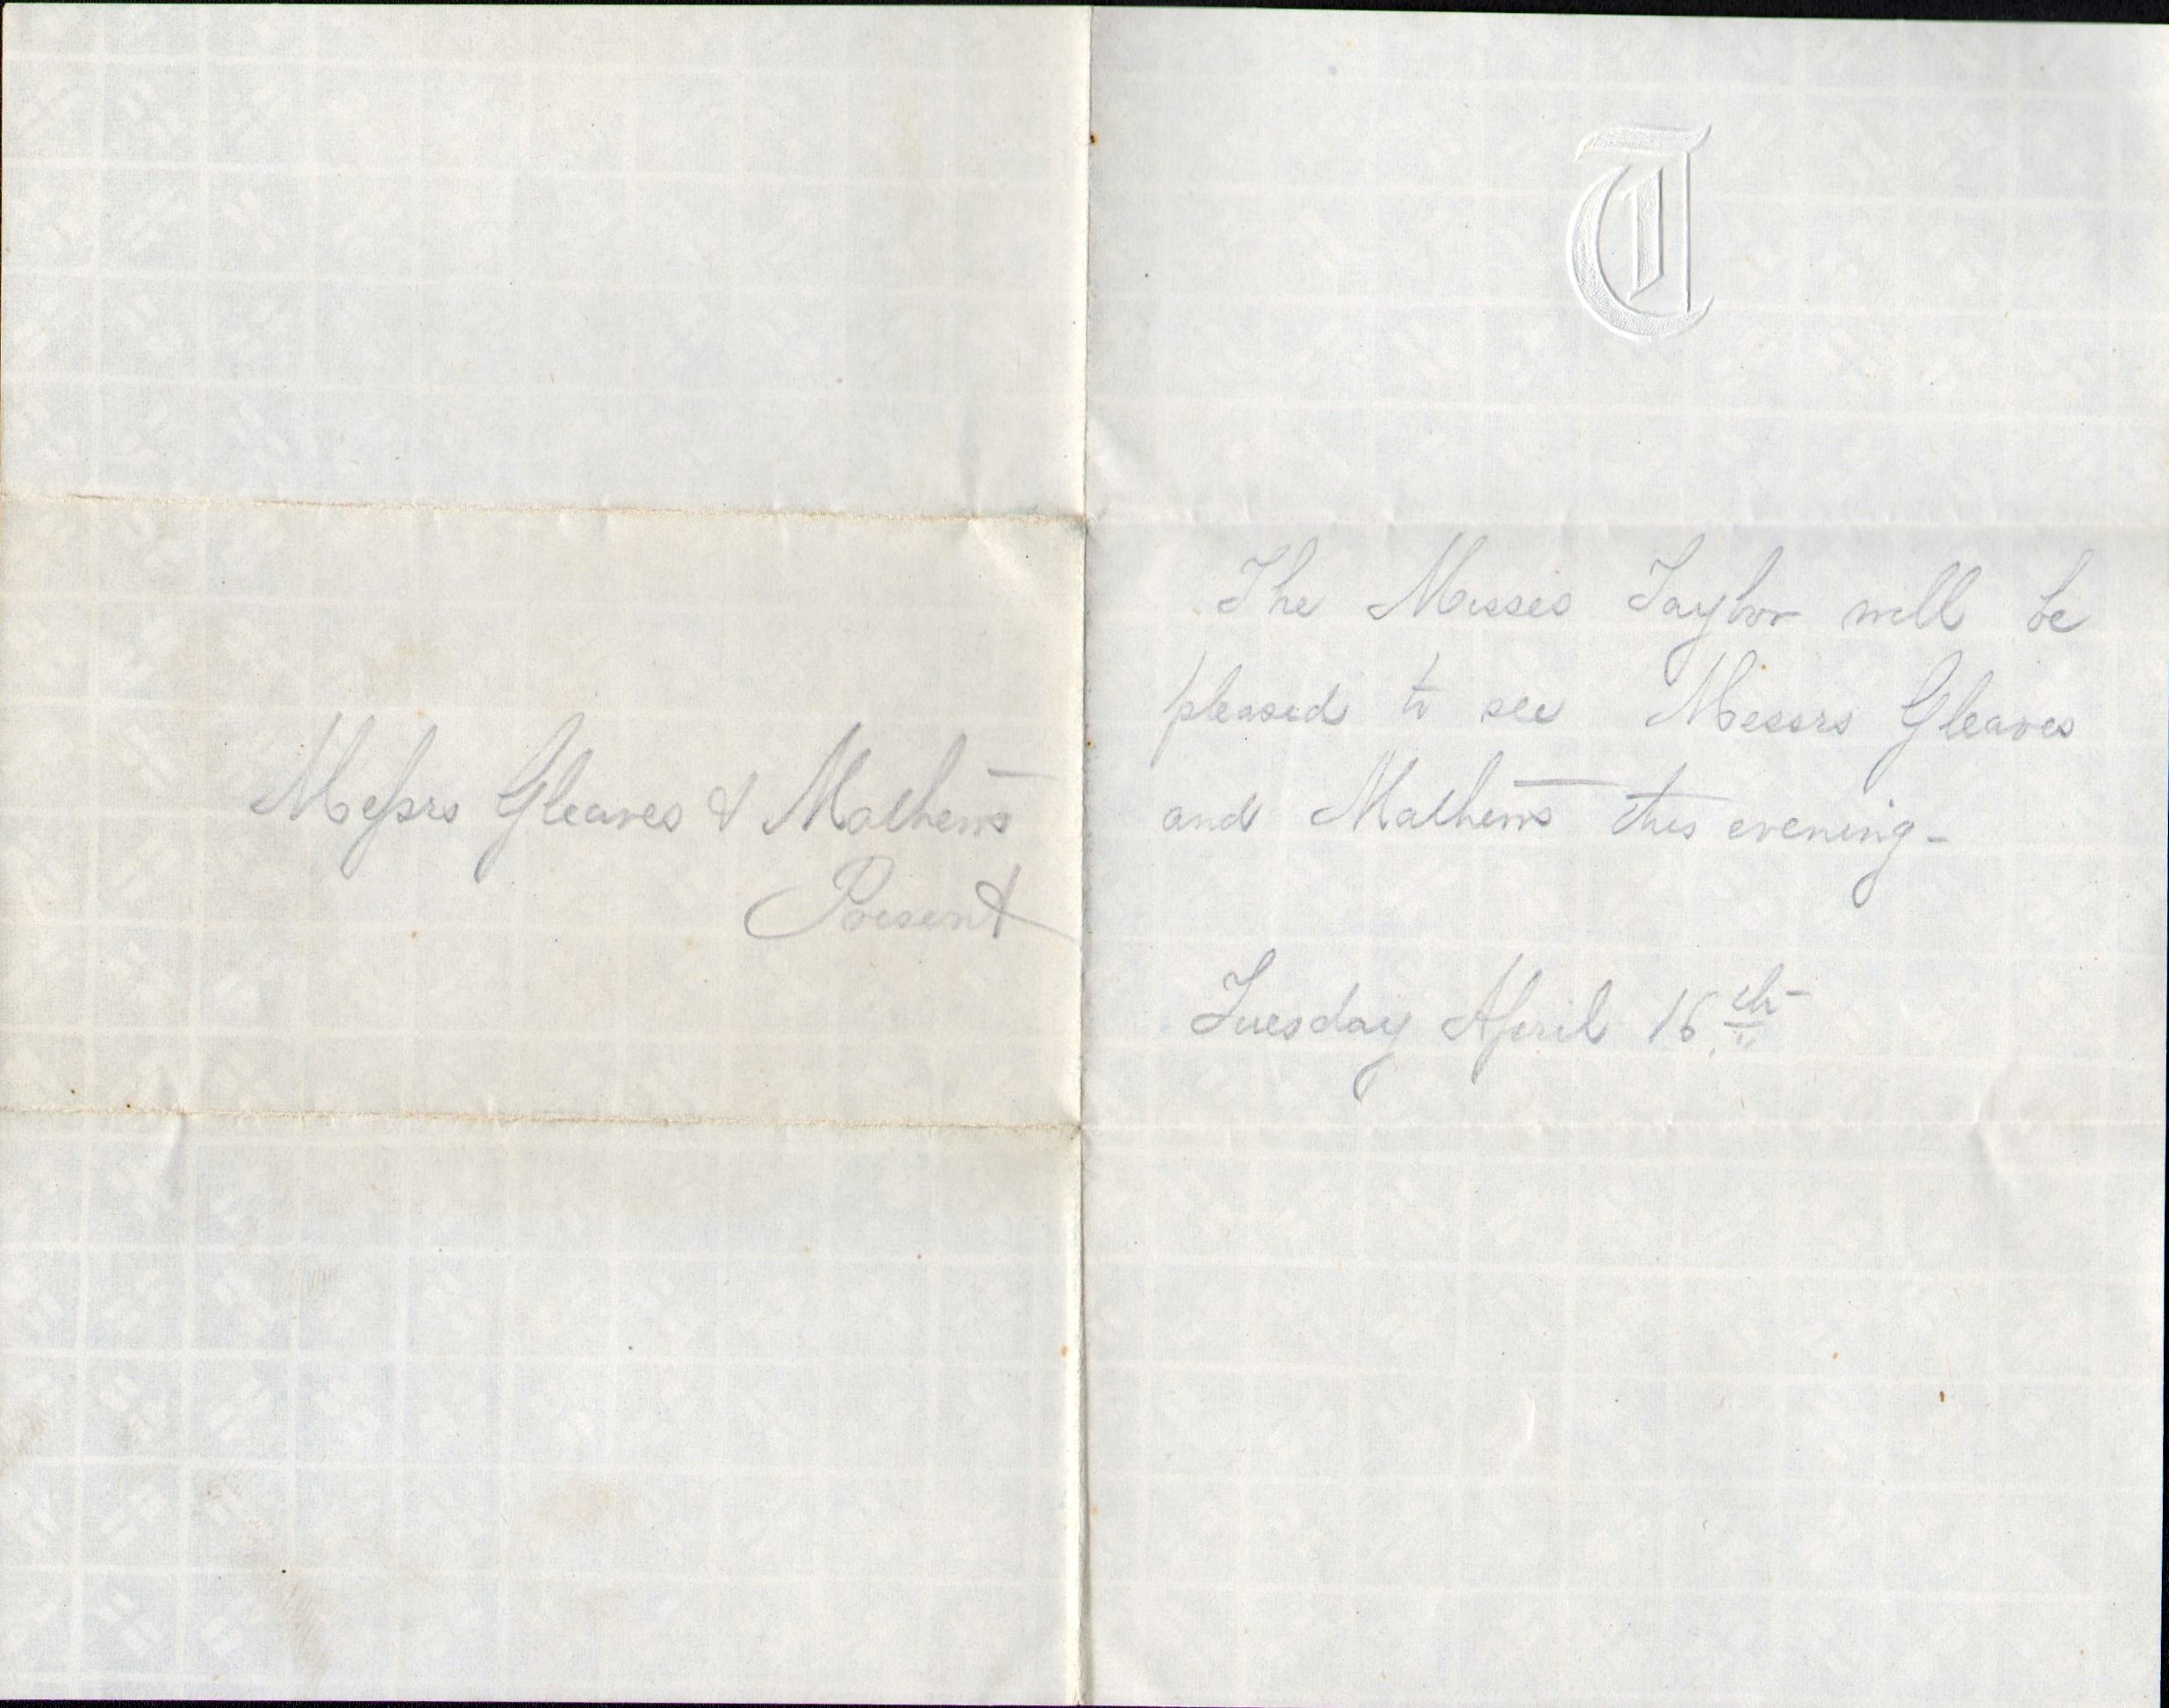 Messrs Gleaves & Mathews
Present
T
The Misses Taylor will be
pleased to see Messrs Gleaves
and Mathews this evening-
Tuesday April 16th